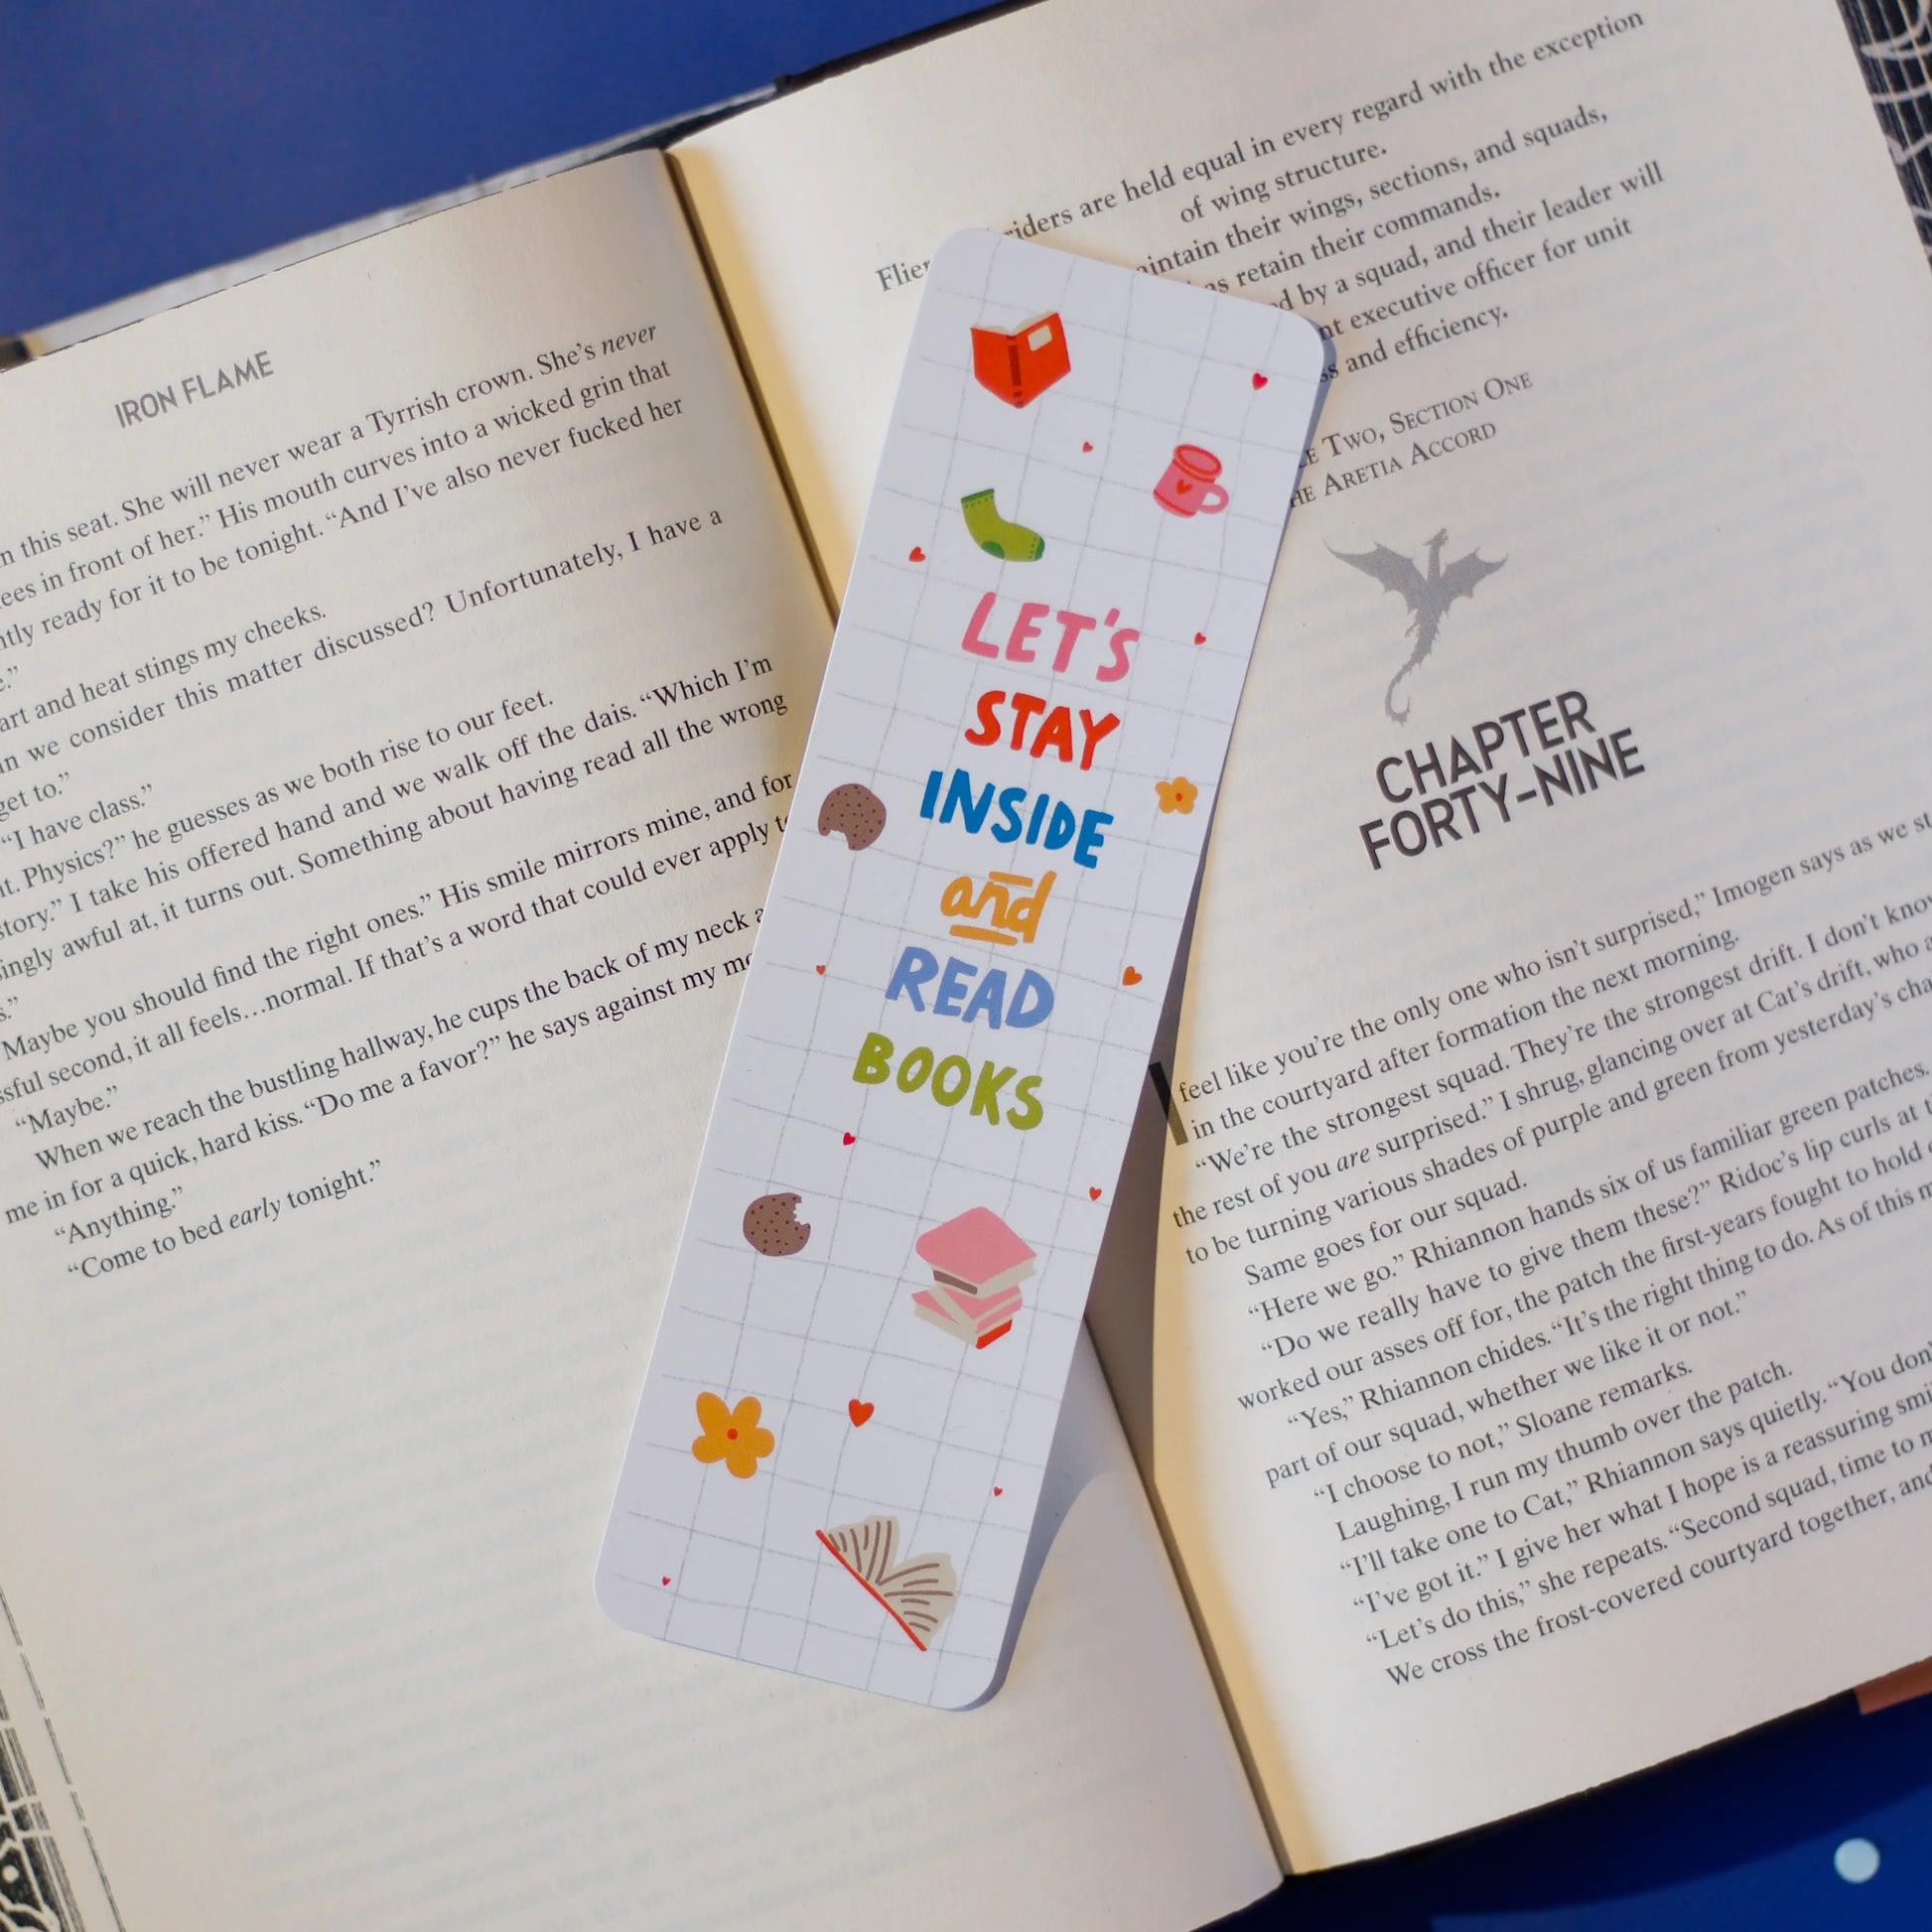 IRON FLAME
n this seat. She will never wear a Tyrrish crown. She's never
ees in front of her.” His mouth curves into a wicked grin that
ntly ready for it to be tonight. “And I've also never fucked her
e.”
art and heat stings my cheeks.
n we consider this matter discussed? Unfortunately, I have a
get to.”
“I have class.”
t. Physics?” he guesses as we both rise to our feet.
story.” I take his offered hand and we walk off the dais. “Which I'm
ingly awful at, it turns out. Something about having read all the wrong
s.”
Maybe you should find the right ones.” His smile mirrors mine, and for
ssful second, it all feels…normal. If that's a word that could ever apply t
“Maybe.”
When we reach the bustling hallway, he cups the back of my neck a
me in for a quick, hard kiss. “Do me a favor?” he says against my mo
“Anything.”
“Come to bed early tonight.”
LET'S
STAY
INSIDE
and
READ
BOOKS
Flier riders are held equal in every regard with the exception
of wing structure.
aintain their wings, sections, and squads,
as retain their commands.
ed by a squad, and their leader will
nt executive officer for unit
ss and efficiency.
LE TWO, SECTION ONE
HE ARETIA ACCORD
CHAPTER
FORTY-NINE
I feel like you're the only one who isn't surprised,” Imogen says as we st
in the courtyard after formation the next morning.
“We're the strongest squad. They're the strongest drift. I don't know
the rest of you are surprised.” I shrug, glancing over at Cat's drift, who a
to be turning various shades of purple and green from yesterday's cha
Same goes for our squad.
“Here we go.” Rhiannon hands six of us familiar green patches.
“Do we really have to give them these?” Ridoc's lip curls at th
worked our asses off for, the patch the first-years fought to hold
“Yes,” Rhiannon chides. “It's the right thing to do. As of this m
part of our squad, whether we like it or not.”
“I choose to not,” Sloane remarks.
Laughing, I run my thumb over the patch.
“I'll take one to Cat,” Rhiannon says quietly. “You don'
“I've got it.” I give her what I hope is a reassuring smi
“Let's do this,” she repeats. “Second squad, time to m
We cross the frost-covered courtyard together, and